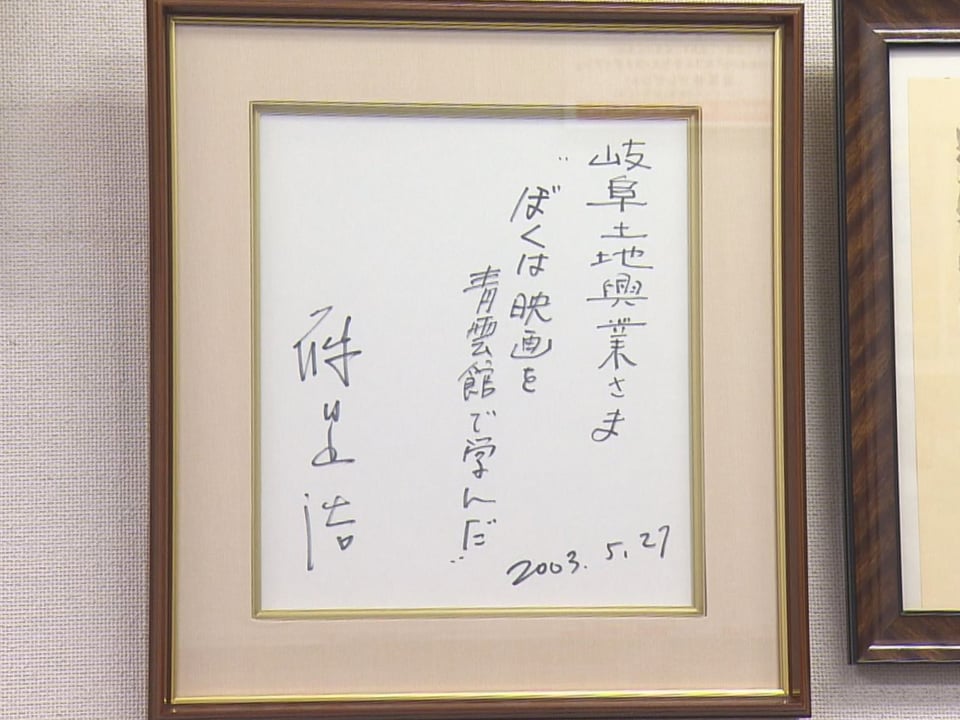 岐阜土地興業さま
“ぼくは映画を
青雲館で学んだ”
2003.5.27